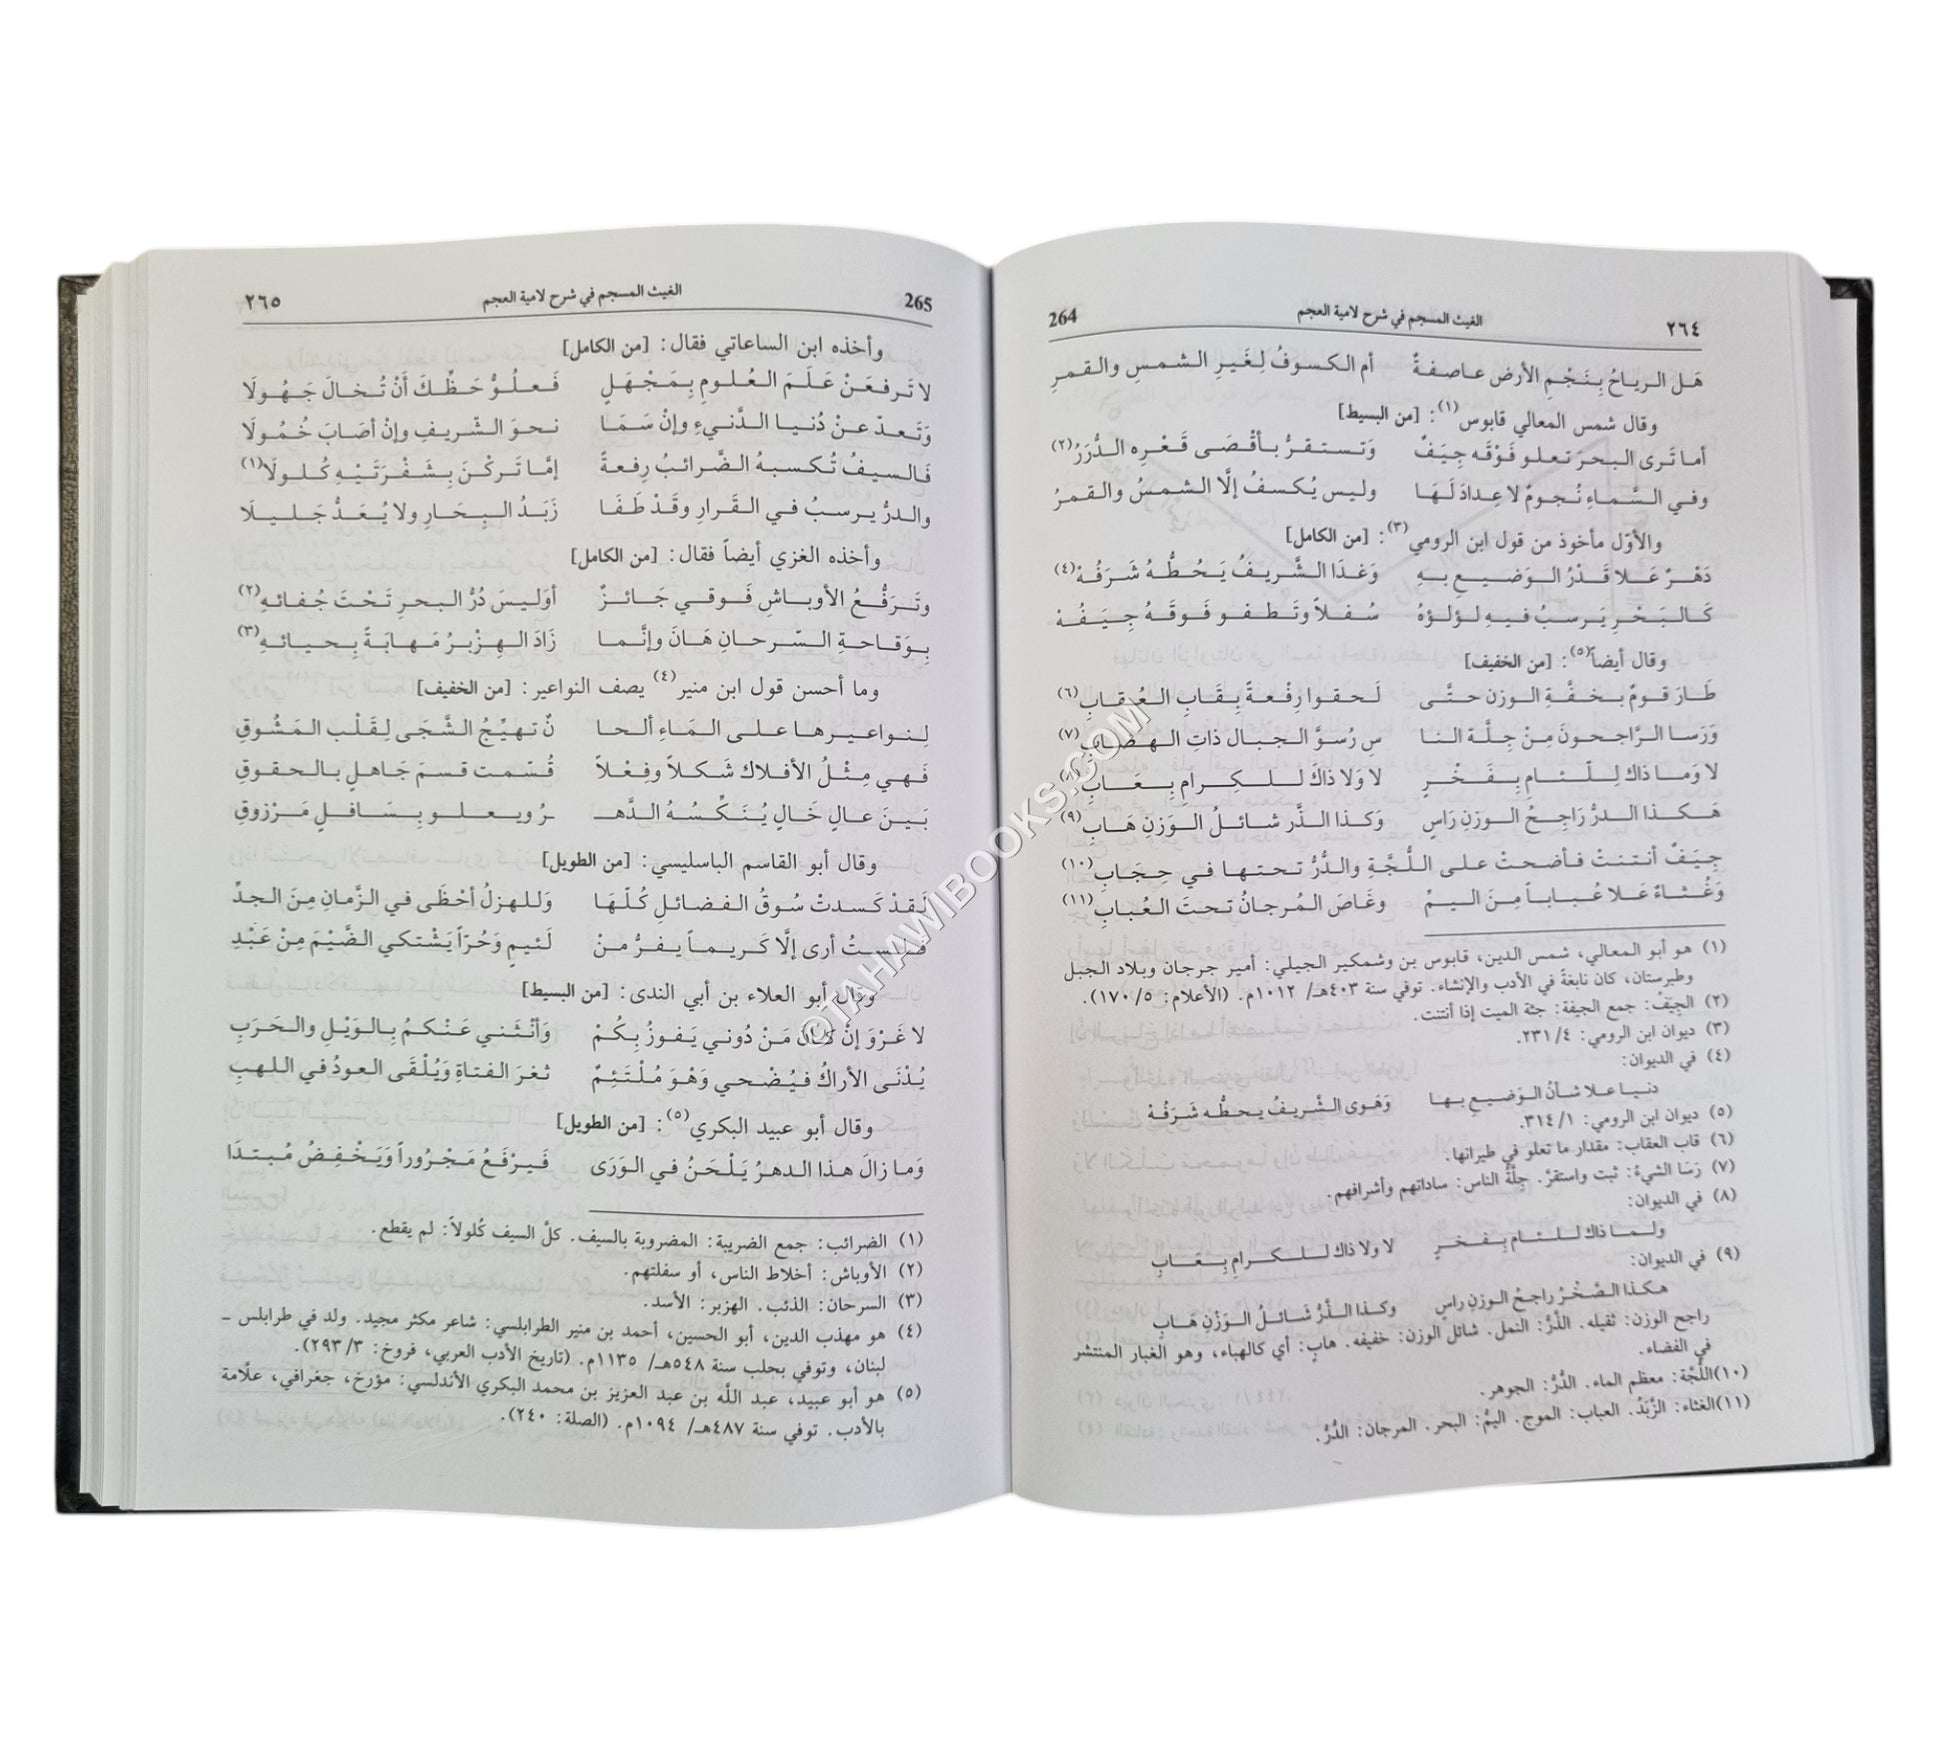 ٢٦٤ الغيث المسجم في شرح لامية العجم 264
هَل الرياحُ بِنَجْمِ الأرض عاصفةٌ أم الكسوفُ لِغَيرِ الشمسِ والقمرِ
وقال شمس المعالي قابوس(١): [من البسيط]
أما تَرى البحرَ تعلو فَوْقَه جِيَفٌ وَتستقرُّ بأقْصَى قَعْرِه الدُّرَرُ(٢)
وفي السَّماءِ نُجومٌ لا عِدادَ لَهَا وليس يُكسفُ إلَّا الشمسُ والقمرُ
والأوّل مأخوذ من قول ابن الرومي(٣): [من الكامل]
دَهْرٌ عَلا قَدْرُ الوَضيعِ بهِ وَغدَا الشَّريفُ يَحُطُّهُ شَرَفُهْ(٤)
كَالبَحْرِ يَرسبُ فيهِ لؤلؤهُ سُفلاً وتَطفو فَوقَهُ جِيَفُهْ
وقال أيضاً(٥): [من الخفيف]
طَارَ قومٌ بخفَّةِ الوزن حتَّى لَحقوا رِفْعةً بِقَابِ العُقابِ(٦)
وَرَسا الرَّاجحونَ مِنْ جِلَّة النا سِ رُسوَّ الجبال ذاتِ الهضابِ(٧)
لا وَما ذاكَ لِلّئامِ بِفَخْرٍ لا وَلا ذاكَ للكِرامِ بِعَابِ
هَكذا الدرُّ رَاجِحُ الوزنِ رَاسٍ وَكذا الذَّر شائلُ الوَزنِ هَابِ(٩)
جِيَفٌ أنتنتْ فأضحتْ على اللُّجَّةِ والدُّرُّ تحتها في حِجَابِ(١٠)
وَغُثاءٌ عَلا عُباباً مِنَ اليمِّ وغَاصَ المُرجانُ تحتَ العُبابِ(١١)
(١) هو أبو المعالي، شمس الدين، قابوس بن وشمكير الجيلي: أمير جرجان وبلاد الجبل
وطبرستان، كان نابغةً في الأدب والإنشاء. توفي سنة ٤٠٣هـ/ ١٠١٢م. (الأعلام: ٥/ ١٧٠).
(٢) الجِيَفُ: جمع الجيفة: جثة الميت إذا أنتنت.
(٣) ديوان ابن الرومي: ٤/ ٢٣١.
(٤) في الديوان:
دنيا علا شأنُ الوَضيعِ بها وَهَوى الشَّريفُ يحطُّه شَرَفُهْ
(٥) ديوان ابن الرومي: ١/ ٣١٤.
(٦) قاب العقاب: مقدار ما تعلو في طيرانها.
(٧) رَسَا الشيءُ: ثبت واستقرْ. جِلّةُ الناس: ساداتهم وأشرافهم.
(٨) في الديوان:
ولما ذاك للئام بِفخرٍ لا ولا ذاك للكرامِ بِعَابِ
(٩) في الديوان:
هكذا الصَّخْرُ راجحُ الوزنِ راسٍ وكذا الذَّرُّ شَائلُ الوَزْنِ هَابِ
راجح الوزن: ثقيله. الذَّرُّ: النمل. شائل الوزن: خفيفه. هابٍ: أي كالهباء، وهو الغبار المنتشر
في الفضاء.
(١٠)اللُّجَّة: معظم الماء. الدُّرُّ: الجوهر.
(١١)الغثاء: الزَّبَدُ. العباب: الموج. اليمُّ: البحر. المرجان: الدُّرُّ.
265 الغيث المسجم في شرح لامية العجم ٢٦٥
وأخذه ابن الساعاتي فقال: [من الكامل]
لا تَرفعَنْ عَلَمَ العُلومِ بِمَجْهَلٍ فَعلُوُّ حَظِّكَ أَنْ تُخالَ جَهُولَا
وَتَعدّ عنْ دُنيا الدَّنيءِ وإنْ سَمَا نحوَ الشّريفِ وإنْ أصَابَ خُمُولَا
فَالسيفُ تُكسبهُ الضَّرائبُ رِفعةً إمَّا تَركْنَ بِشَفْرَتَيْهِ كُلولَا(١)
والدرُّ يرسبُ في القَرارِ وقَدْ طَفَا زَبَدُ البِحَارِ ولا يُعَدُّ جَليلَا
وأخذه الغزي أيضاً فقال: [من الكامل]
وتَرَفُّعُ الأوباشِ فَوقي جَائزٌ أوَليسَ دُرُّ البحرِ تَحْتَ جُفائهِ(٢)
بِوَقاحةِ السّرحانِ هَانَ وإنَّما زَادَ الهِزْبرُ مَهابَةً بِحيائهِ(٣)
وما أحسن قول ابن منير(٤) يصف النواعير: [من الخفيف]
لِنواعيرها على المَاءِ ألحا نٌ تهيِّجُ الشَّجَى لِقَلْب المَشُوقِ
فَهي مِثْلُ الأفلاك شَكلاً وفِعْلاً قُسّمت قسمَ جَاهلٍ بالحقوقِ
بَينَ عالٍ خَالٍ يُنَكِّسُهُ الدَّهـ ـرُ ويعلو بِسَافلٍ مَرْزوقِ
وقال أبو القاسم الباسليسي: [من الطويل]
لَقدْ كَسدتْ سُوقُ الفضائلِ كُلّهَا وَللهزلُ أحْظَى في الزَّمانِ مِنَ الجدِّ
فلستُ أرى إلَّا كَريماً يفرُّ منْ لَئيمٍ وَحُرّاً يَشْتكي الضَّيْمَ مِنْ عَبْدِ
وقال أبو العلاء بن أبي الندى: [من البسيط]
لا غَرْوَ إنْ كانَ مَنْ دُوني يَفوزُ بِكُمْ وَأنْثَني عَنْكمُ بِالوَيْلِ والحَرَبِ
يُدْنَى الأراكُ فيُضْحي وَهْوَ مُلْتَئِمٌ ثغرَ الفتاةِ وَيُلْقَى العودُ في اللهبِ
وقال أبو عبيد البكري(٥): [من الطويل]
وَما زالَ هذا الدهرُ يَلْحَنُ في الوَرَى فَيرْفَعُ مَجْرُوراً وَيَخْفِضُ مُبتدَا
(١) الضرائب: جمع الضريبة: المضروبة بالسيف. كلَّ السيف كُلولاً: لم يقطع.
(٢) الأوباش: أخلاط الناس، أو سفلتهم.
(٣) السرحان: الذئب. الهزبر: الأسد.
(٤) هو مهذب الدين، أبو الحسين، أحمد بن منير الطرابلسي: شاعر مكثر مجيد. ولد في طرابلس ـ
لبنان، وتوفي بحلب سنة ٥٤٨هـ/ ١١٣٥م. (تاريخ الأدب العربي، فروخ: ٣/ ٢٩٣).
(٥) هو أبو عبيد، عبد اللَّه بن عبد العزيز بن محمد البكري الأندلسي: مؤرخ، جغرافي، علّامة
بالأدب. توفي سنة ٤٨٧هـ/ ١٠٩٤م. (الصلة: ٢٤٠).
©TAHAWIBOOKS.COM